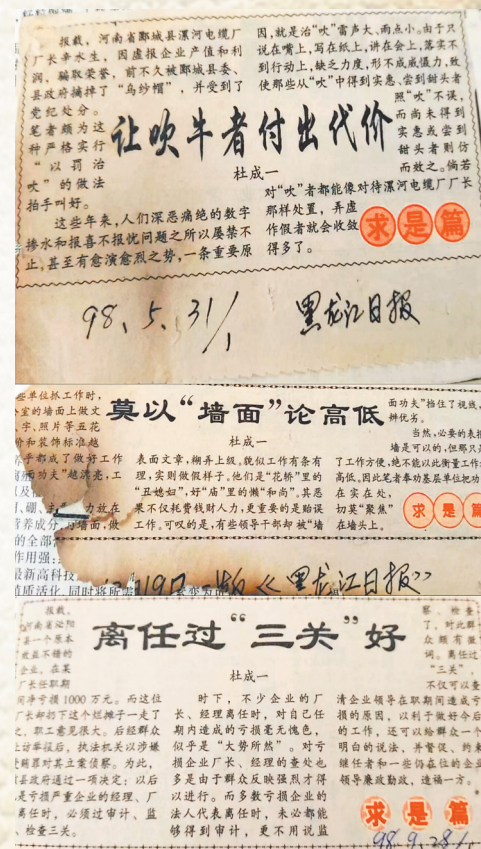 报载，河南省郾城县漯河电缆厂
厂长辛水生，因虚报企业产值和利
润，骗取荣誉，前不久被郾城县委、
县政府摘掉了“乌纱帽”，并受到了
党纪处分。
笔者颇为这
种严格实行
“以罚治
吹”的做法
拍手叫好。
这些年来，人们深恶痛绝的数字
掺水和报喜不报忧问题之所以屡禁不
止，甚至有愈演愈烈之势，一条重要原
让吹牛者付出代价
杜成一
因，就是治“吹”雷声大、雨点小。由于只
说在嘴上，写在纸上，讲在会上，落实不
到行动上，缺乏力度，形不成威慑力，致
使那些从“吹”中得到实惠、尝到甜头者
照“吹”不误，
而尚未得到
实惠或尝到
甜头者则仿
而效之。倘若
对“吹”者都能像对待漯河电缆厂厂长
那样处置，弄虚
作假者就会收敛
得多了。
求是篇
98.5.31/1 黑龙江日报
些单位抓工作时，
室的墙面上做文
字、照片等五花
价和装饰标准越
乎都成了做好工作
面功夫”越漂亮，工
力放在
墙面，做
莫以“墙面”论高低
杜成一
表面文章，糊弄上级。貌似工作有条有
理，实则做假样子。他们是“花轿”里的
“丑媳妇”，好“庙”里的懒“和尚”。其恶
果不仅耗费钱财人力，更重要的是贻误
工作。可叹的是，有些领导干部却被“墙
面功夫”挡住了视线，
辨优劣。
当然，必要的表
墙是可以的，但那只
了工作方便，绝不能以此衡量工作
高低。因此笔者奉劝基层单位把功
在实在处，
切莫“聚焦”
在墙头上。
求是篇
的全部
作用强：
最新高科技
19日 一版《黑龙江日报》
报载，
河南省泌阳
县一个原本
效益不错的
企业，在某
厂长任职期
间净亏损1000万元。而这位
厂长却扔下这个烂摊子一走了
之，职工意见很大。后经群众
上访举报后，执法机关以涉嫌
受贿罪对其立案侦察。为此，
县政府通过一项决定：以后
是亏损严重企业的经理、厂
离任时，必须过审计、监
、检查三关。
离任过“三关”好
杜成一
时下，不少企业的厂
长、经理离任时，对自己任
期内造成的亏损毫无愧色，
似乎是“大势所然”。对亏
损企业厂长、经理的查处也
多是由于群众反映强烈才得
以进行。而多数亏损企业的
法人代表离任时，未必都能
够得到审计，更不用说监
察、检查
了，对此群
众颇有微
词。离任过
“三关”，
不仅可以查
清企业领导在职期间造成亏
损的原因，以利于做好今后
的工作，还可以给群众一个
明白的说法，并督促、约束
继任者和一些仍在位的企业
领导廉政勤政，造福一方。
求是篇
98.9.28/1